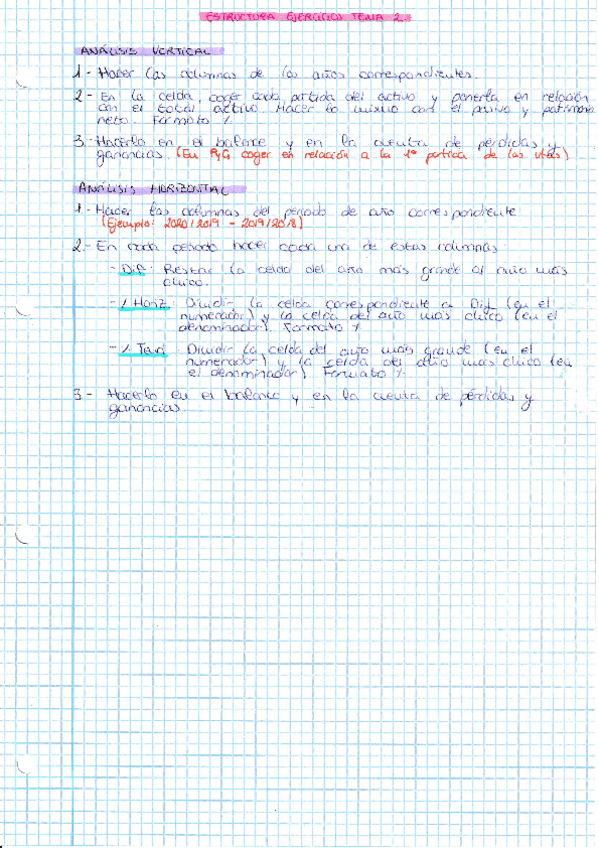 ESTRUCTURA EJERCICIOS TEMA 2
ANÁLISIS VERTICAL
1.- Hacer las columnas de los años correspondientes.
2.- En la celda, coger cada partida del activo y ponerla en relación
con el total activo. Hacer lo mismo con el pasivo y patrimonio
neto. Formato %
3.- Hacerlo en el balance y en la cuenta de pérdidas y
ganancias. (En PyG coger en relación a la 1ª partida de las vtas)
ANÁLISIS HORIZONTAL
1.- Hacer las columnas del periodo de año correspondiente
(Ejemplo: 2020/2019 - 2019/2018)
2.- En cada periodo hacer cada una de estas columnas
- Dif: Restar la celda del año más grande al año más
chico.
- % Horiz: Dividir la celda correspondiente a Dif (en el
numerador) y la celda del año más chico (en el
denominador). Formato %
- % Tend: Dividir la celda del año más grande (en el
numerador) y la celda del año más chico (en
el denominador) Formato %.
3.- Hacerlo en el balance y en la cuenta de pérdidas y
ganancias.